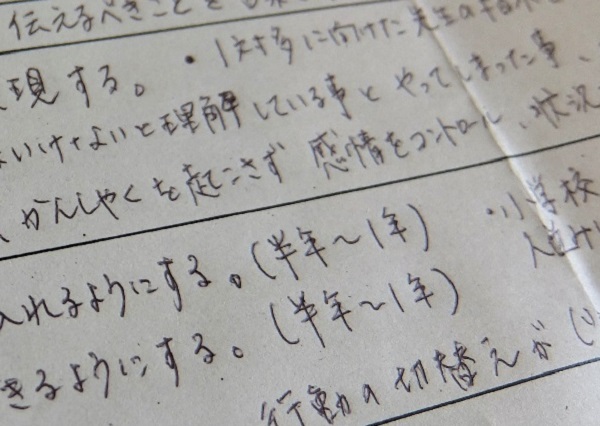 伝えるべきことを
現する。 ・1対多に向けた先生の指示
いけないと理解している事とやってしまった事、
かんしゃくを起こさず 感情をコントロール、状況
入れるようにする。(半年～1年) ・小学校
きるようにする。(半年～1年)
行動の切替えが